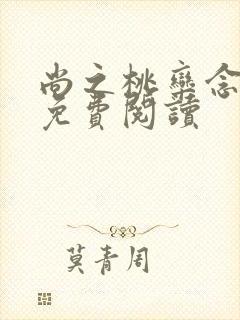 尚之桃栾念
免費閱讀
莫青周